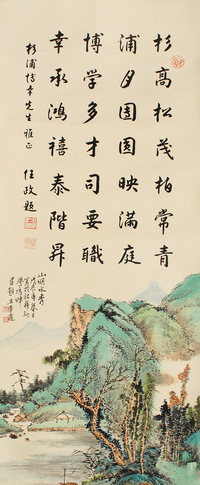 杉高松茂柏常青
浦月圆圆映满庭
博学多才司要職
幸承鸿禧泰階昇
杉浦博幸先生雅正
任政题
山明水秀